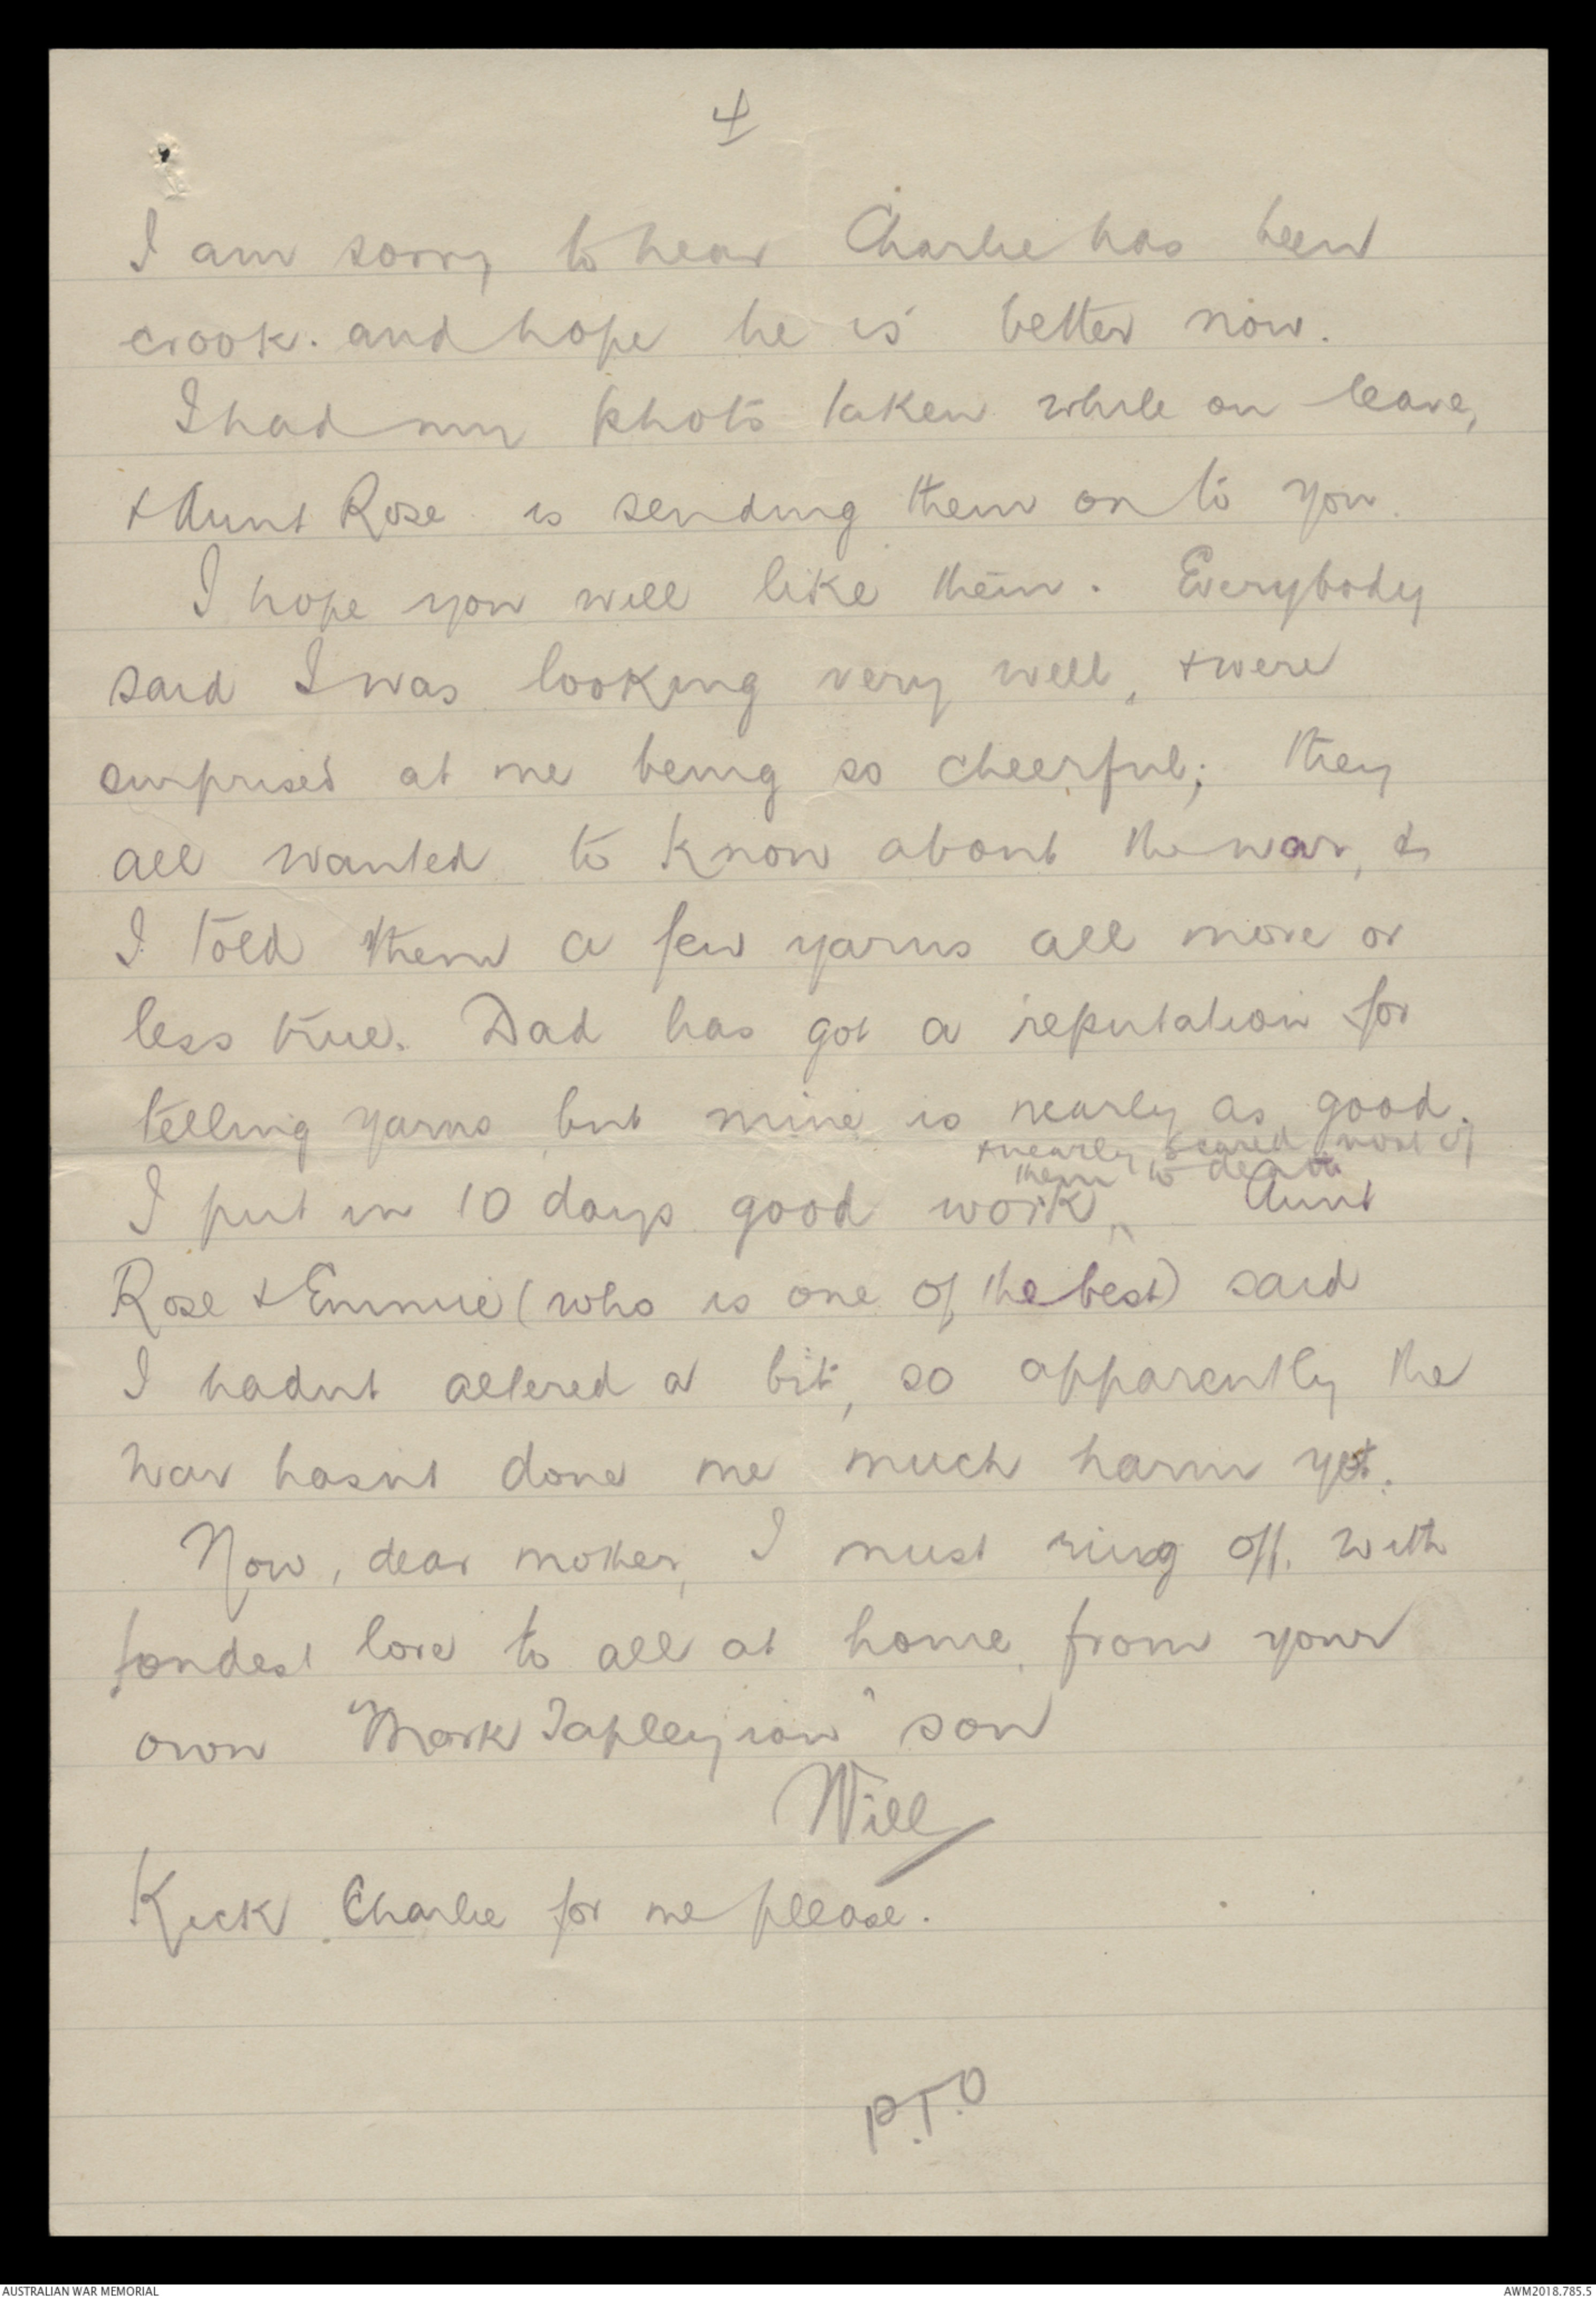 4
I am sorry to hear Charlie has been
crook. and hope he is better now.
I had my photo taken while on leave,
& Aunt Rose is sending them on to you.
I hope you will like them. Everybody
said I was looking very well, & were
surprised at me being so cheerful; they
all wanted to know about the war, &
I told them a few yarns all more or
less true. Dad has got a reputation for
telling yarns but mine is nearly as good.
& nearly scared most of
them to death
I put in 10 days good work, ^ Aunt
Rose & Emmie (who is one of the best) said
I hadnt altered a bit, so apparently the
war hasnt done me much harm yet.
Now, dear mother, I must ring off. with
fondest love to all at home, from your
own "Mark Tapleyian" son
Will
Kick Charlie for me please.
P.T.O
AUSTRALIAN WAR MEMORIAL
AWM2018.785.5